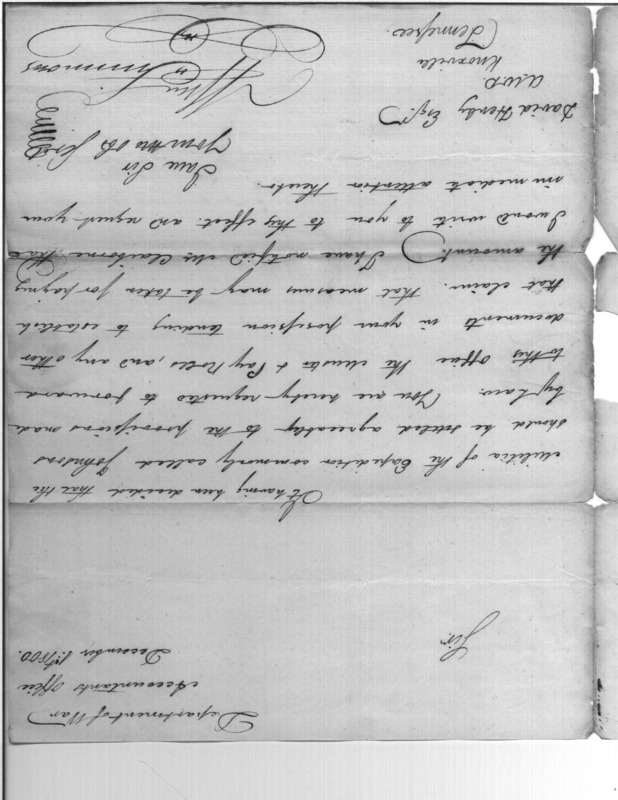 Department of War
Accountants office
December 1st 1800.
Sir
It having been decided that the
militia of the Expedition commonly called Johnsons
should be settled agreeably to the provisions made
by Law. You are hereby requested to forward
to this office the muster & Pay Rolls, and any other
documents in your possession tending to establish
that claim. that measures may be taken for paying
the amount. I have notified Mr. Claiborne that
I would write to you to this effect. and request your
immediate attention thereto.
I am Sir
your mo obt servt
Wm Simmons
David Henly Esqr
A.W.D.
Knoxville
Tennessee.